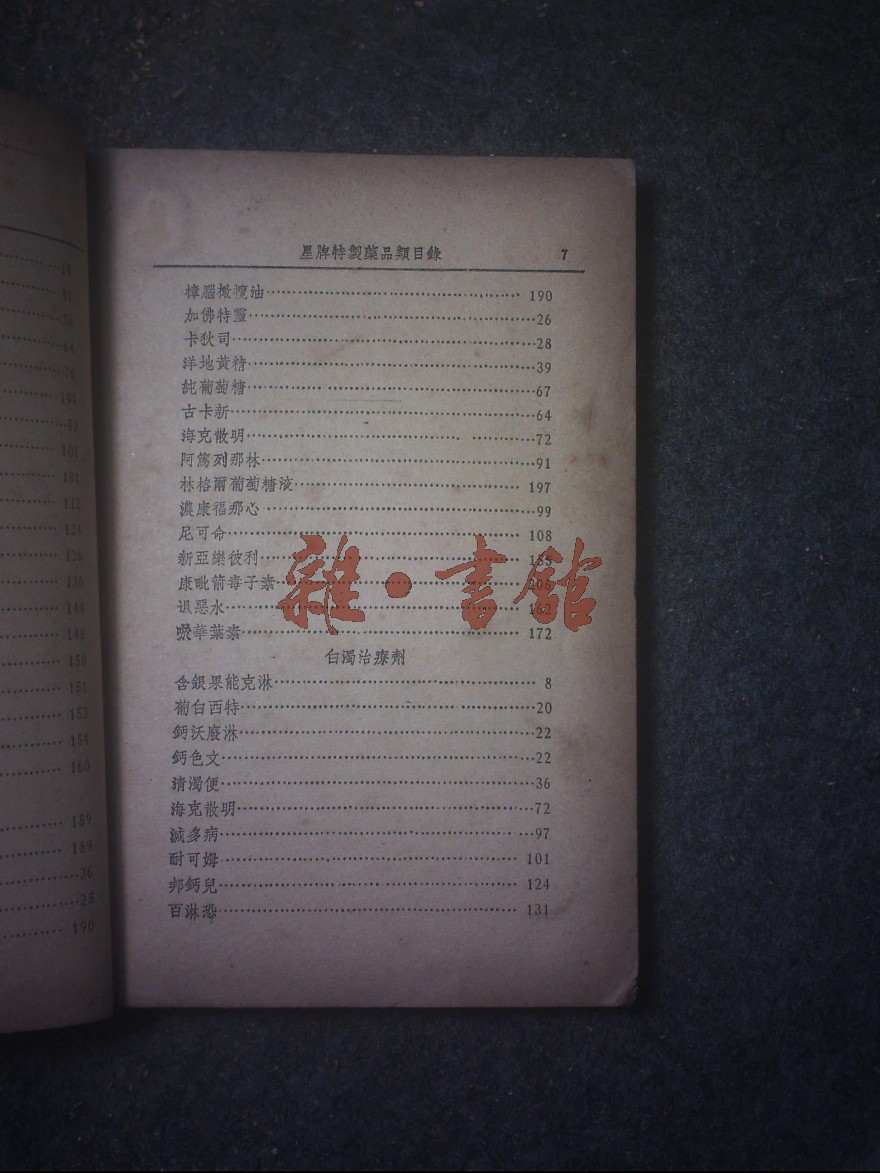 星牌特製藥品類目錄 7
樟腦橄欖油 190
加佛特靈 26
卡狄司 28
洋地黃精 39
純葡萄糖 67
古卡新 64
海克散明 72
阿篤列那林 91
林格爾葡萄糖液 197
濃康福那心 99
尼可命 108
新亞樂彼利
康毗箭毒子素
退惡水
華葉素 172
白濁治療劑
含銀果能克淋 8
葡白西特 20
鈣沃廢淋 22
鈣色文 22
清濁便 36
海克散明 72
滅多病 97
耐可姆 101
邦鈣兒 124
百淋恐 131
雜·書館
11
41
64
101
112
124
126
136
144
148
150
151
153
154
160
189
189
36
25
190